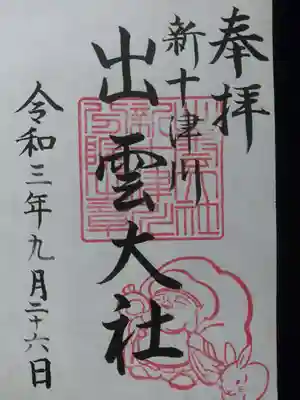 奉拝
新十津川
出雲大社
令和三年九月二十六日